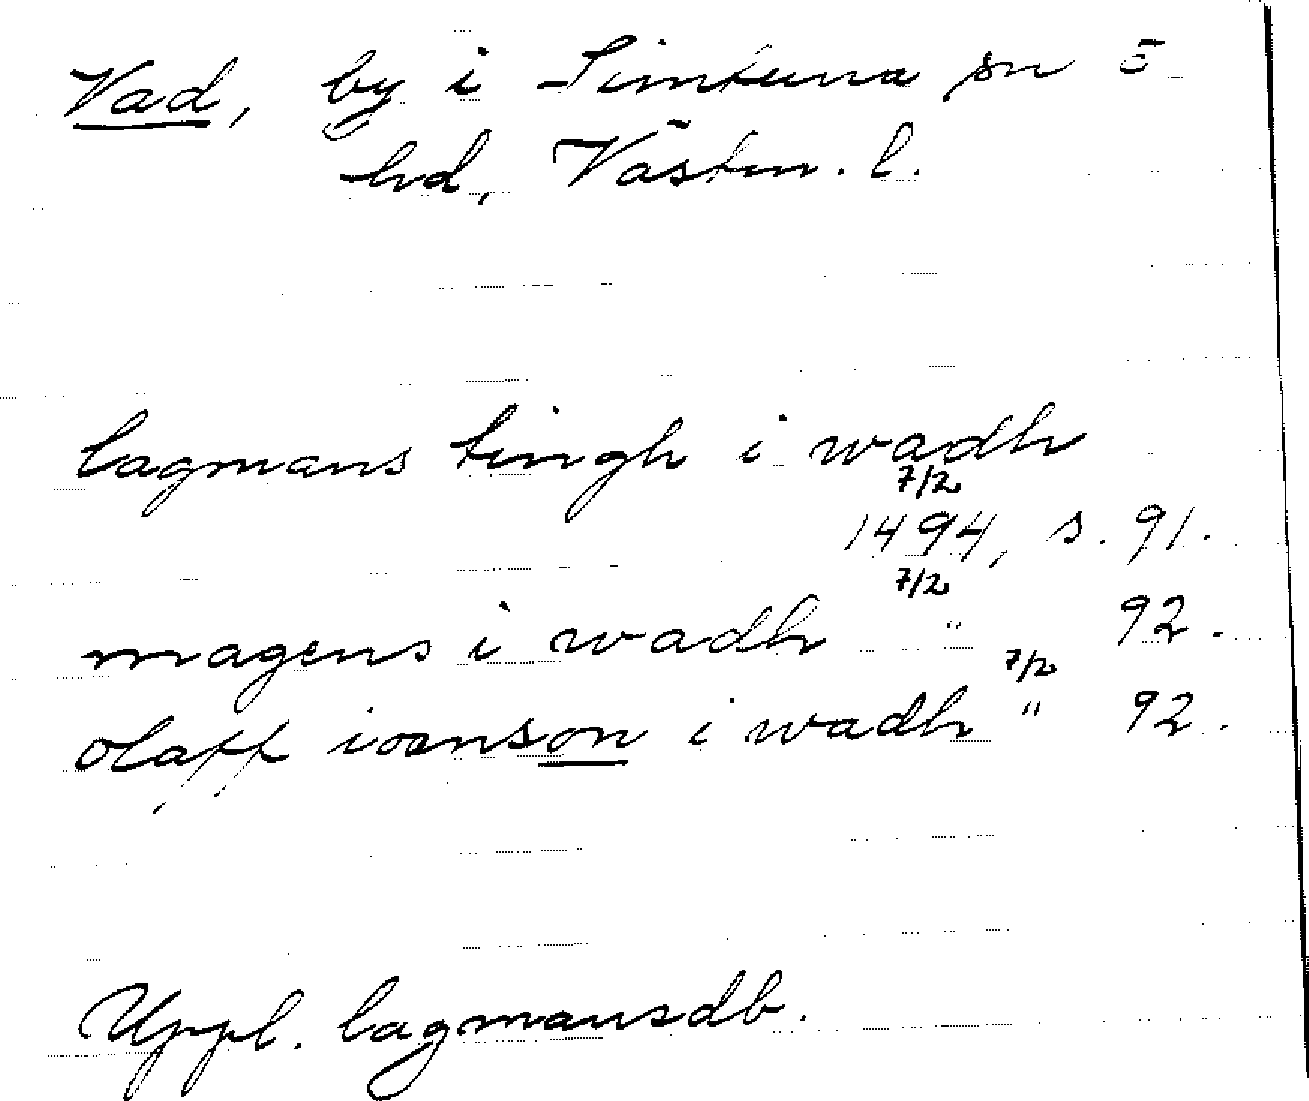 Vad, by i Simtuna sn S
hd, Västm. l.
lagmans tingh i wadh
7/2
1494, s. 91.
7/2
magens i wadh " 92.
7/2
olaff ioansson i wadh " 92.
Uppl. lagmansdb.